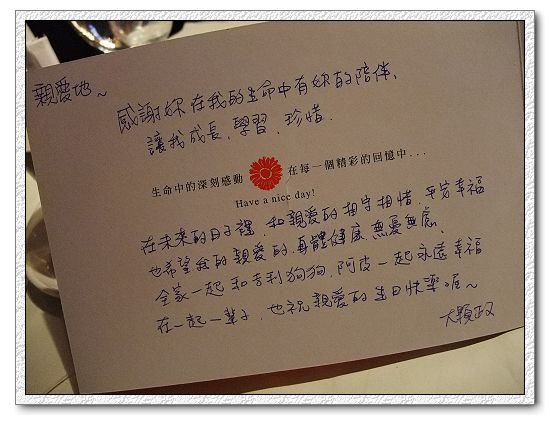 親愛地~
感謝妳在我的生命中有妳的陪伴、
讓我成長,學習,珍惜.
生命中的深刻感動 在每一個精彩的回憶中...
Have a nice day!
在未來的日子裡,和親愛的相守相惜.平安幸福
也希望我的親愛的.身體健康.無憂無慮、
全家一起和吉利狗狗,阿皮一起永遠幸福
在一起一輩子,也祝親愛的生日快樂喔~
大顆